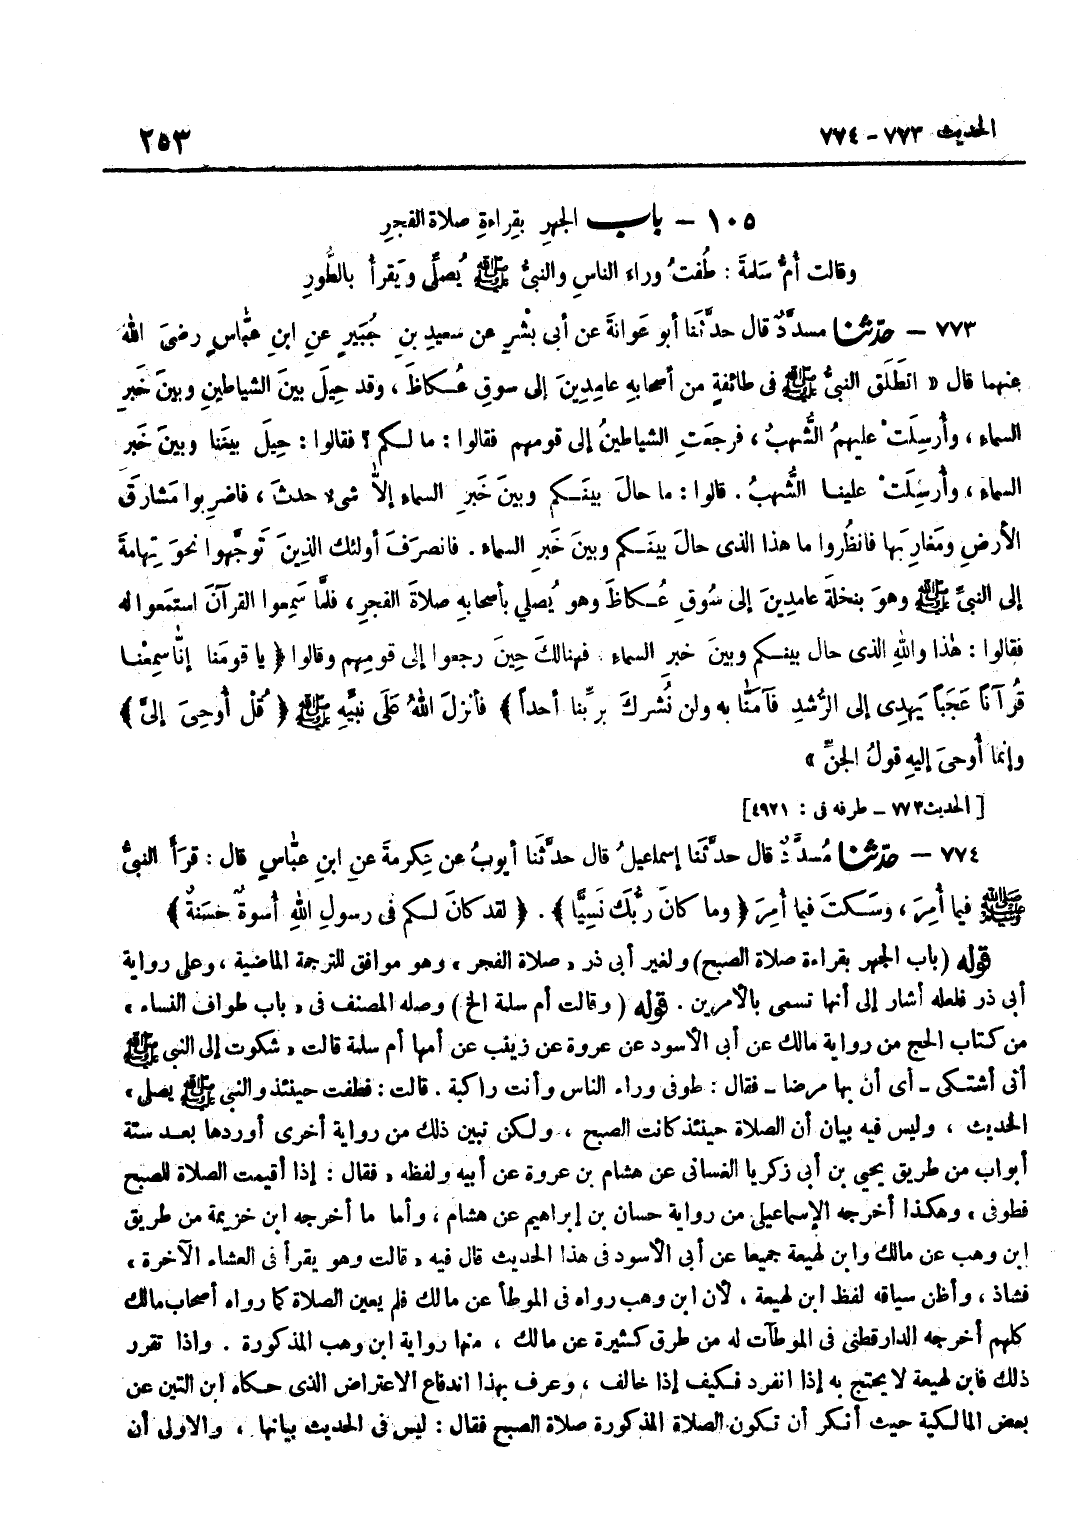 الحديث ٧٧٣ - ٧٧٤
٢٥٣
١٠٥ - باب الجهرِ بقِراءةِ صلاة الفجرِ
وقالت أمُّ سَلمةَ : طُفتُ وراء الناسِ والنبيُّ ﷺ يُصلِّى ويَقرأُ بالطُّورِ
٧٧٣ - حدّثنا مسدَّدٌ قال حدَّثَنا أبو عَوانةَ عن أبى بِشْرٍ عن سعيدِ بنِ جُبَيرٍ عنِ ابنِ عبَّاسٍ رضىَ اللهُ
عنهما قال « انطَلَق النبيُّ ﷺ فى طائفةٍ من أصحابهِ عامِدِينَ إلى سوقِ عُكاظَ ، وقد حِيلَ بينَ الشياطينِ وبينَ خَبرِ
السماءِ ، وأُرسِلَتْ عليهمُ الشُّهبُ ، فرجَعَتِ الشياطينُ إلى قومِهم فقالوا : ما لكم ؟ فقالوا : حِيلَ بينَنا وبينَ خَبَرِ
السماءِ ، وأُرسِلَتْ علينا الشُّهبُ . قالوا : ما حالَ بينَكم وبينَ خَبرِ السماءِ إلاَّ شىءٌ حدثَ ، فاضرِبوا مَشارقَ
الأرضِ ومَغارِبَها فانظُروا ما هذا الذى حالَ بينَكم وبينَ خَبرِ السماء . فانصرَفَ أولئك الذِينَ تَوجَّهوا نحوَ تِهامةَ
إلى النبيِّ ﷺ وهوَ بنخلةَ عامدِينَ إلى سُوقِ عُكاظَ وهو يُصلِّي بأصحابهِ صلاةَ الفجرِ ، فلمَّا سَمِعوا القرآنَ استمَعوا له
فقالوا : هٰذا واللهِ الذى حال بينكم وبينَ خبرِ السماءِ . فهنالكَ حِينَ رجعوا إلى قومِهم وقالوا ﴿ يا قومَنا إنَّا سمِعْنا
قُرآناً عَجَباً يَهدِى إلى الرُّشدِ فآمَنَّا به ولن نُشركَ بربِّنا أحداً ﴾ فأنزلَ اللهُ عَلَى نبيِّهِ ﷺ ﴿ قُلْ أُوحِىَ إلىَّ ﴾
وإنما أُوحىَ إليهِ قولُ الجنِّ »
[ الحديث ٧٧٣ - طرفه فى : ٤٩٢١ ]
٧٧٤ - حدّثنا مُسدَّدٌ قال حدَّثَنا إسماعيلُ قال حدَّثَنا أيوبُ عن عِكرمةَ عنِ ابنِ عبَّاسٍ قال : قرَأَ النبيُّ
ﷺ فيما أُمِرَ ، وسَكتَ فيما أُمِرَ ﴿ وما كانَ ربُّكَ نَسِيًّا ﴾ . ﴿ لقد كانَ لكم فى رسولِ اللهِ أُسوةٌ حسَنةٌ ﴾
قوله ( باب الجهر بقراءة صلاة الصبح ) ولغير أبى ذر « صلاة الفجر » وهو موافق للترجمة الماضية ، وعلى رواية
أبى ذر فلعله أشار إلى أنها تسمى بالأمرين . قوله ( وقالت أم سلمة الخ ) وصله المصنف فى « باب طواف النساء »
من كتاب الحج من رواية مالك عن أبى الأسود عن عروة عن زينب عن أمها أم سلمة قالت « شكوت إلى النبى ﷺ
أنى أشتكى - أى أن بها مرضا - فقال : طوفى وراء الناس وأنت راكبة . قالت : فطفت حينئذ والنبى ﷺ يصلى »
الحديث ، وليس فيه بيان أن الصلاة حينئذ كانت الصبح ، ولكن تبين ذلك من رواية أخرى أوردها بعد ستة
أبواب من طريق يحيى بن أبى زكريا الغسانى عن هشام بن عروة عن أبيه ولفظه « فقال : إذا أقيمت الصلاة للصبح
فطوفى » وهكذا أخرجه الإسماعيلى من رواية حسان بن إبراهيم عن هشام ، وأما ما أخرجه ابن خزيمة من طريق
ابن وهب عن مالك وابن لهيعة جميعا عن أبى الأسود فى هذا الحديث قال فيه « قالت وهو يقرأ فى العشاء الآخرة »
فشاذ ، وأظن سياقه لفظ ابن لهيعة ، لأن ابن وهب رواه فى الموطأ عن مالك فلم يعين الصلاة كما رواه أصحاب مالك
كلهم أخرجه الدارقطنى فى الموطآت له من طرق كثيرة عن مالك ، منها رواية ابن وهب المذكورة . واذا تقرر
ذلك فابن لهيعة لا يحتج به إذا انفرد فكيف إذا خالف ، وعرف بهذا اندفاع الاعتراض الذى حكاه ابن التين عن
بعض المالكية حيث أنكر أن تكون الصلاة المذكورة صلاة الصبح فقال : ليس فى الحديث بيانها ، والاولى أن